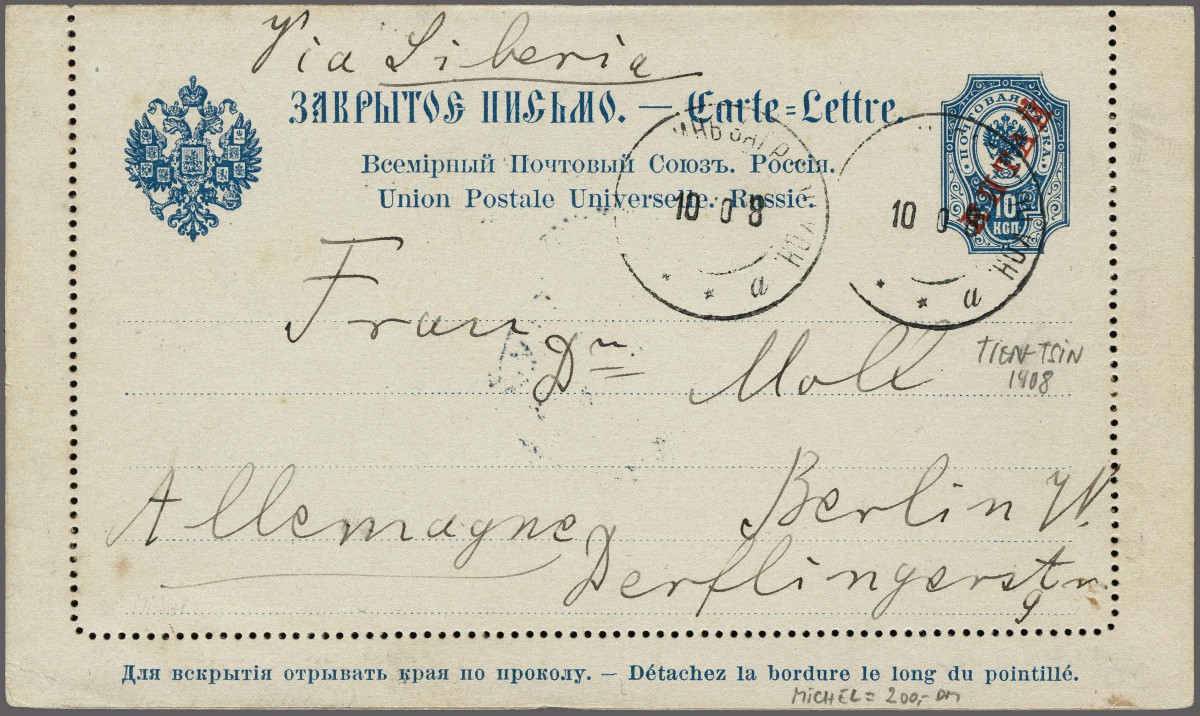 Via Siberia
ЗАКРЫТОЕ ПИСЬМО. — Carte=Lettre.
Всемірный Почтовый Союзъ. Россія.
Union Postale Universelle. Russie.
ПОЧТОВАЯ МАРКА.
КИТАЙ
10
КОП
10 0 8
a
10 0 8
a
Frau
Dr Moll
TIEN-TSIN
1908
Berlin W.
Allemagne
Derflingerstr
9
Для вскрытія отрывать края по проколу. — Détachez la bordure le long du pointillé.
MICHEL = 200,- DM